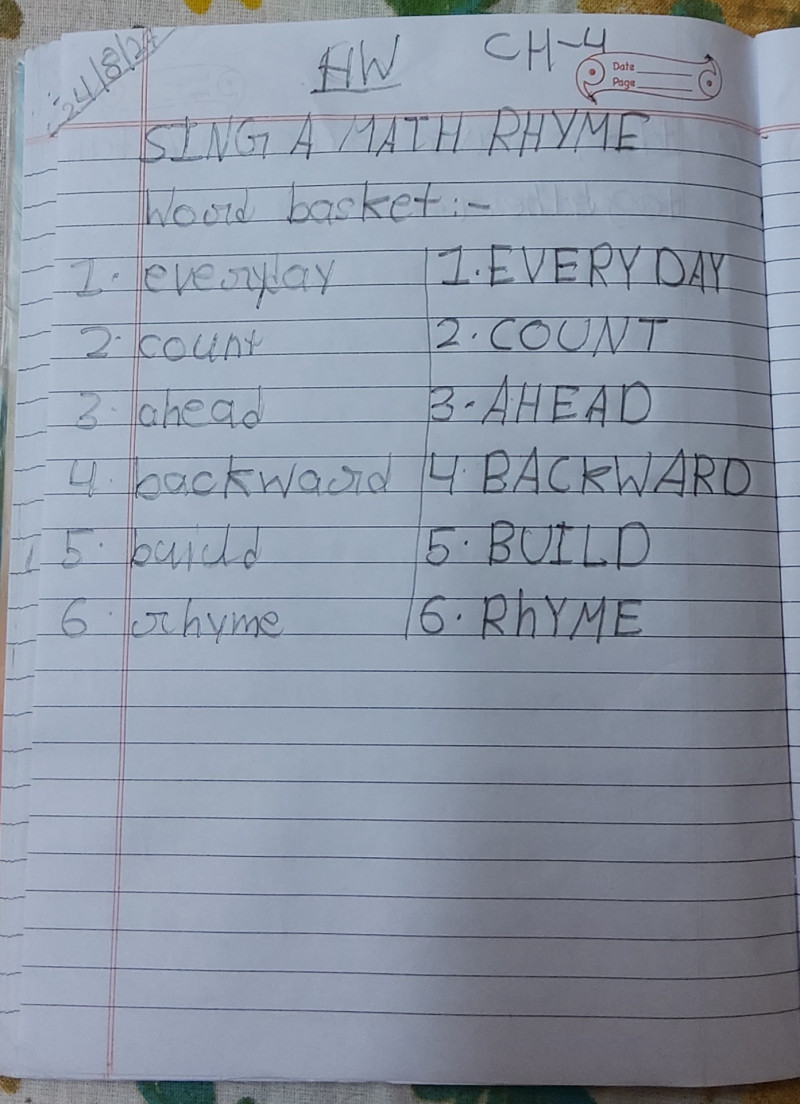 HW CH-4
Date
Page
SING A MATH RHYME
Word basket:-
1. everyday 1. EVERYDAY
2. count 2. COUNT
3. ahead 3. AHEAD
4. backward 4. BACkWARD
5. build 5. BUILD
6. rhyme 6. RhYME